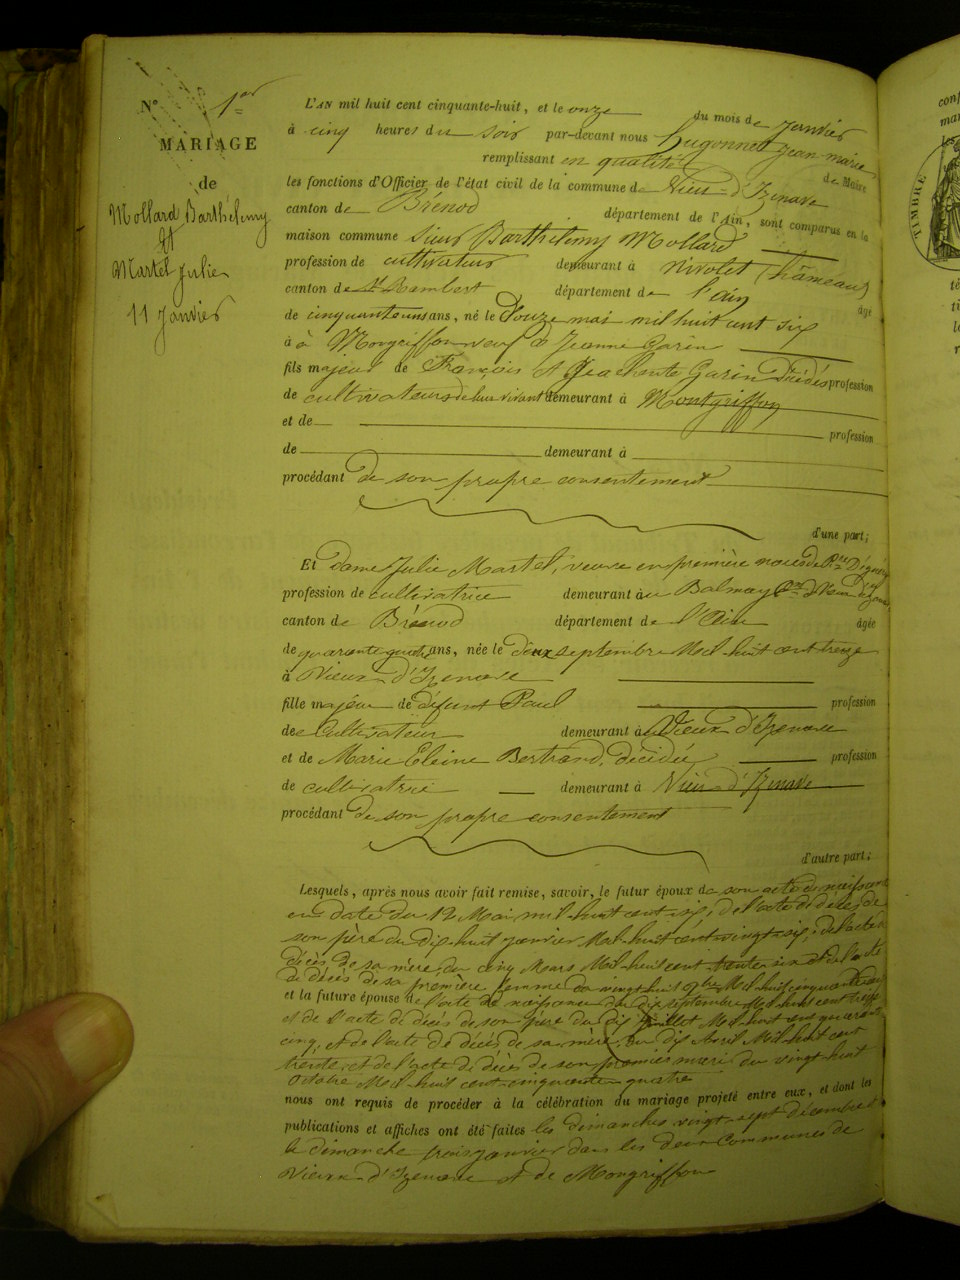 N° 1er
MARIAGE
de
Mollard Barthélemy
Et
Martel Julie
11 Janvier
L'AN mil huit cent cinquante-huit, et le onze du mois de Janvier
à cinq heures du soir par-devant nous Hugonnet Jean-marie
remplissant en qualité de Maire
les fonctions d'Officier de l'état civil de la commune de Vieu-d'Izenave
canton de Brénod département de l'Ain, sont comparus en la
maison commune sieur Barthélemy Mollard
profession de cultivateur demeurant à Nivolet (hâmeau)
canton de St Rambert département de l'ain âgé
de cinquante un ans, né le Douze mai mil huit cent six
à à Mongriffon veuf de Jeanne Garin
fils majeur de François et Garin Décédés profession
de cultivateurs de leur vivant demeurant à Montgriffon
et de profession
de demeurant à
procédant de son propre consentement
d'une part;
Et dame Julie Martel, veuve en première noces de
profession de cultivatrice demeurant à au Balmay
canton de Brénod département de l'Ain âgée
de quarante quatre ans, née le deux septembre Mil huit cent treize
à Vieux-d'Izenave
fille majeure de défunt Paul profession
de Cultivateur demeurant à Vieux d'Izenave
et de Marie Eleine Bertrand, décédée profession
de cultivatrice demeurant à Vieu-d'Izenave
procédant de son propre consentement
d'autre part;
Lesquels, après nous avoir fait remise, savoir, le futur époux de son acte de naissance
en date du 12 Mai mil-huit cent-six, de l'acte de décès de
son père du dix-huit janvier Mil-huit cent vingt-six, de l'acte de
décès de sa mère, du cinq Mars Mil-huit cent trente six et de l'acte
de décès de sa première femme du vingt huit 9bre Mil-huit cinquante
et la future épouse de l'acte de naissance du dix septembre Mil huit cent treize
et de l'acte de décès de son père du dix juillet Mil-huit cent quarante
cinq, et de l'acte de décès de sa mère, du dix Avril Mil-huit cent
trente, et de l'acte de décès de son premier mari du vingt huit
Octobre Mil-huit cent-cinquante quatre
nous ont requis de procéder à la célébration du mariage projeté entre eux, et dont les
publications et affiches ont été faites les dimanches vingt-sept décembre et
le dimanche trois janvier dans les deux Communes de
Vieux-d'Izenave et de Mongriffon
TIMBRE